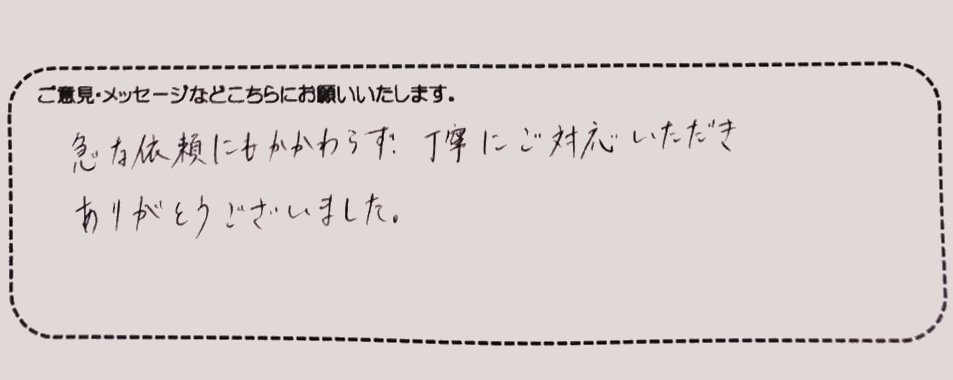 ご意見・メッセージなどこちらにお願いいたします。
急な依頼にもかかわらず、丁寧にご対応いただき
ありがとうございました。